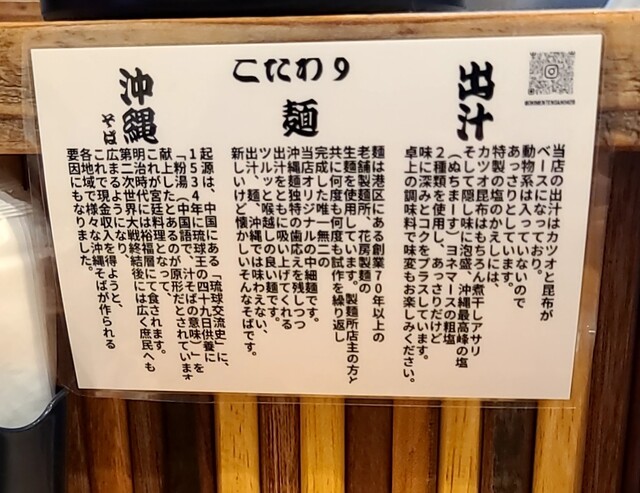 こだわり
出汁
当店の出汁はカツオと昆布が
ベースになっており。
動物系は入っていないので
あっさりとしています。
特製の塩のかえしには、
カツオ昆布はもちろん煮干しアサリ
そして隠し味に泡盛、沖縄最高峰の塩
(ぬちまーす)、ヨネマースの粗塩
2種類を使用し、あっさりだけど
味に深みとコクをプラスしています。
卓上の調味料で味変もお楽しみください。
麺
麺は港区にある創業70年以上の
老舗製麺所、花房製麺の
生麺を使用しています。製麺所店主の方と
共に何度も何度も試作を繰り返し
完成した唯一無二の
当店オリジナルの中細麺です。
沖縄麺独特の歯応えを残しつつ
出汁をともに吸い上げてくれる
ツルッと喉越しの良い麺です。
出汁、麺、沖縄では味わえない、
新しいけど懐かしいそんなそばです。
沖縄そば
起源は、中国にある「琉球交流史」に、
1534年に琉球王の四十九日供養に
「粉湯」(中国語で、汁そばの意味)」を
献上したとあるのが原形だとされています
これが宮廷料理となって、
明治時代には裕福層にて食されます。
第二次世界大戦終結後には広く庶民へも
広まるようになり、
これで現金収入を得ようと、
各地域で様々な沖縄そばが作られる
要因にもなりました。